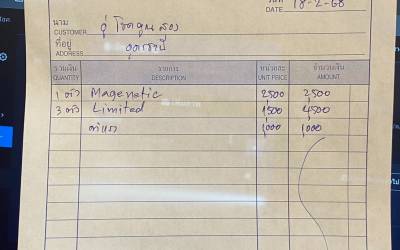 วันที่
DATE 18-2-68
นาม
CUSTOMER อู่ โชคคูนสอง
ที่อยู่
ADDRESS อุดรธานี
รวมเงิน รายการ หน่วยละ จำนวนเงิน
QUANTITY DESCRIPTION UNIT PRICE AMOUNT
1 ตัว Magenetic 2,500 2500
3 ตัว Limited 1500 4500
ค่าแรง 1,000 1,000